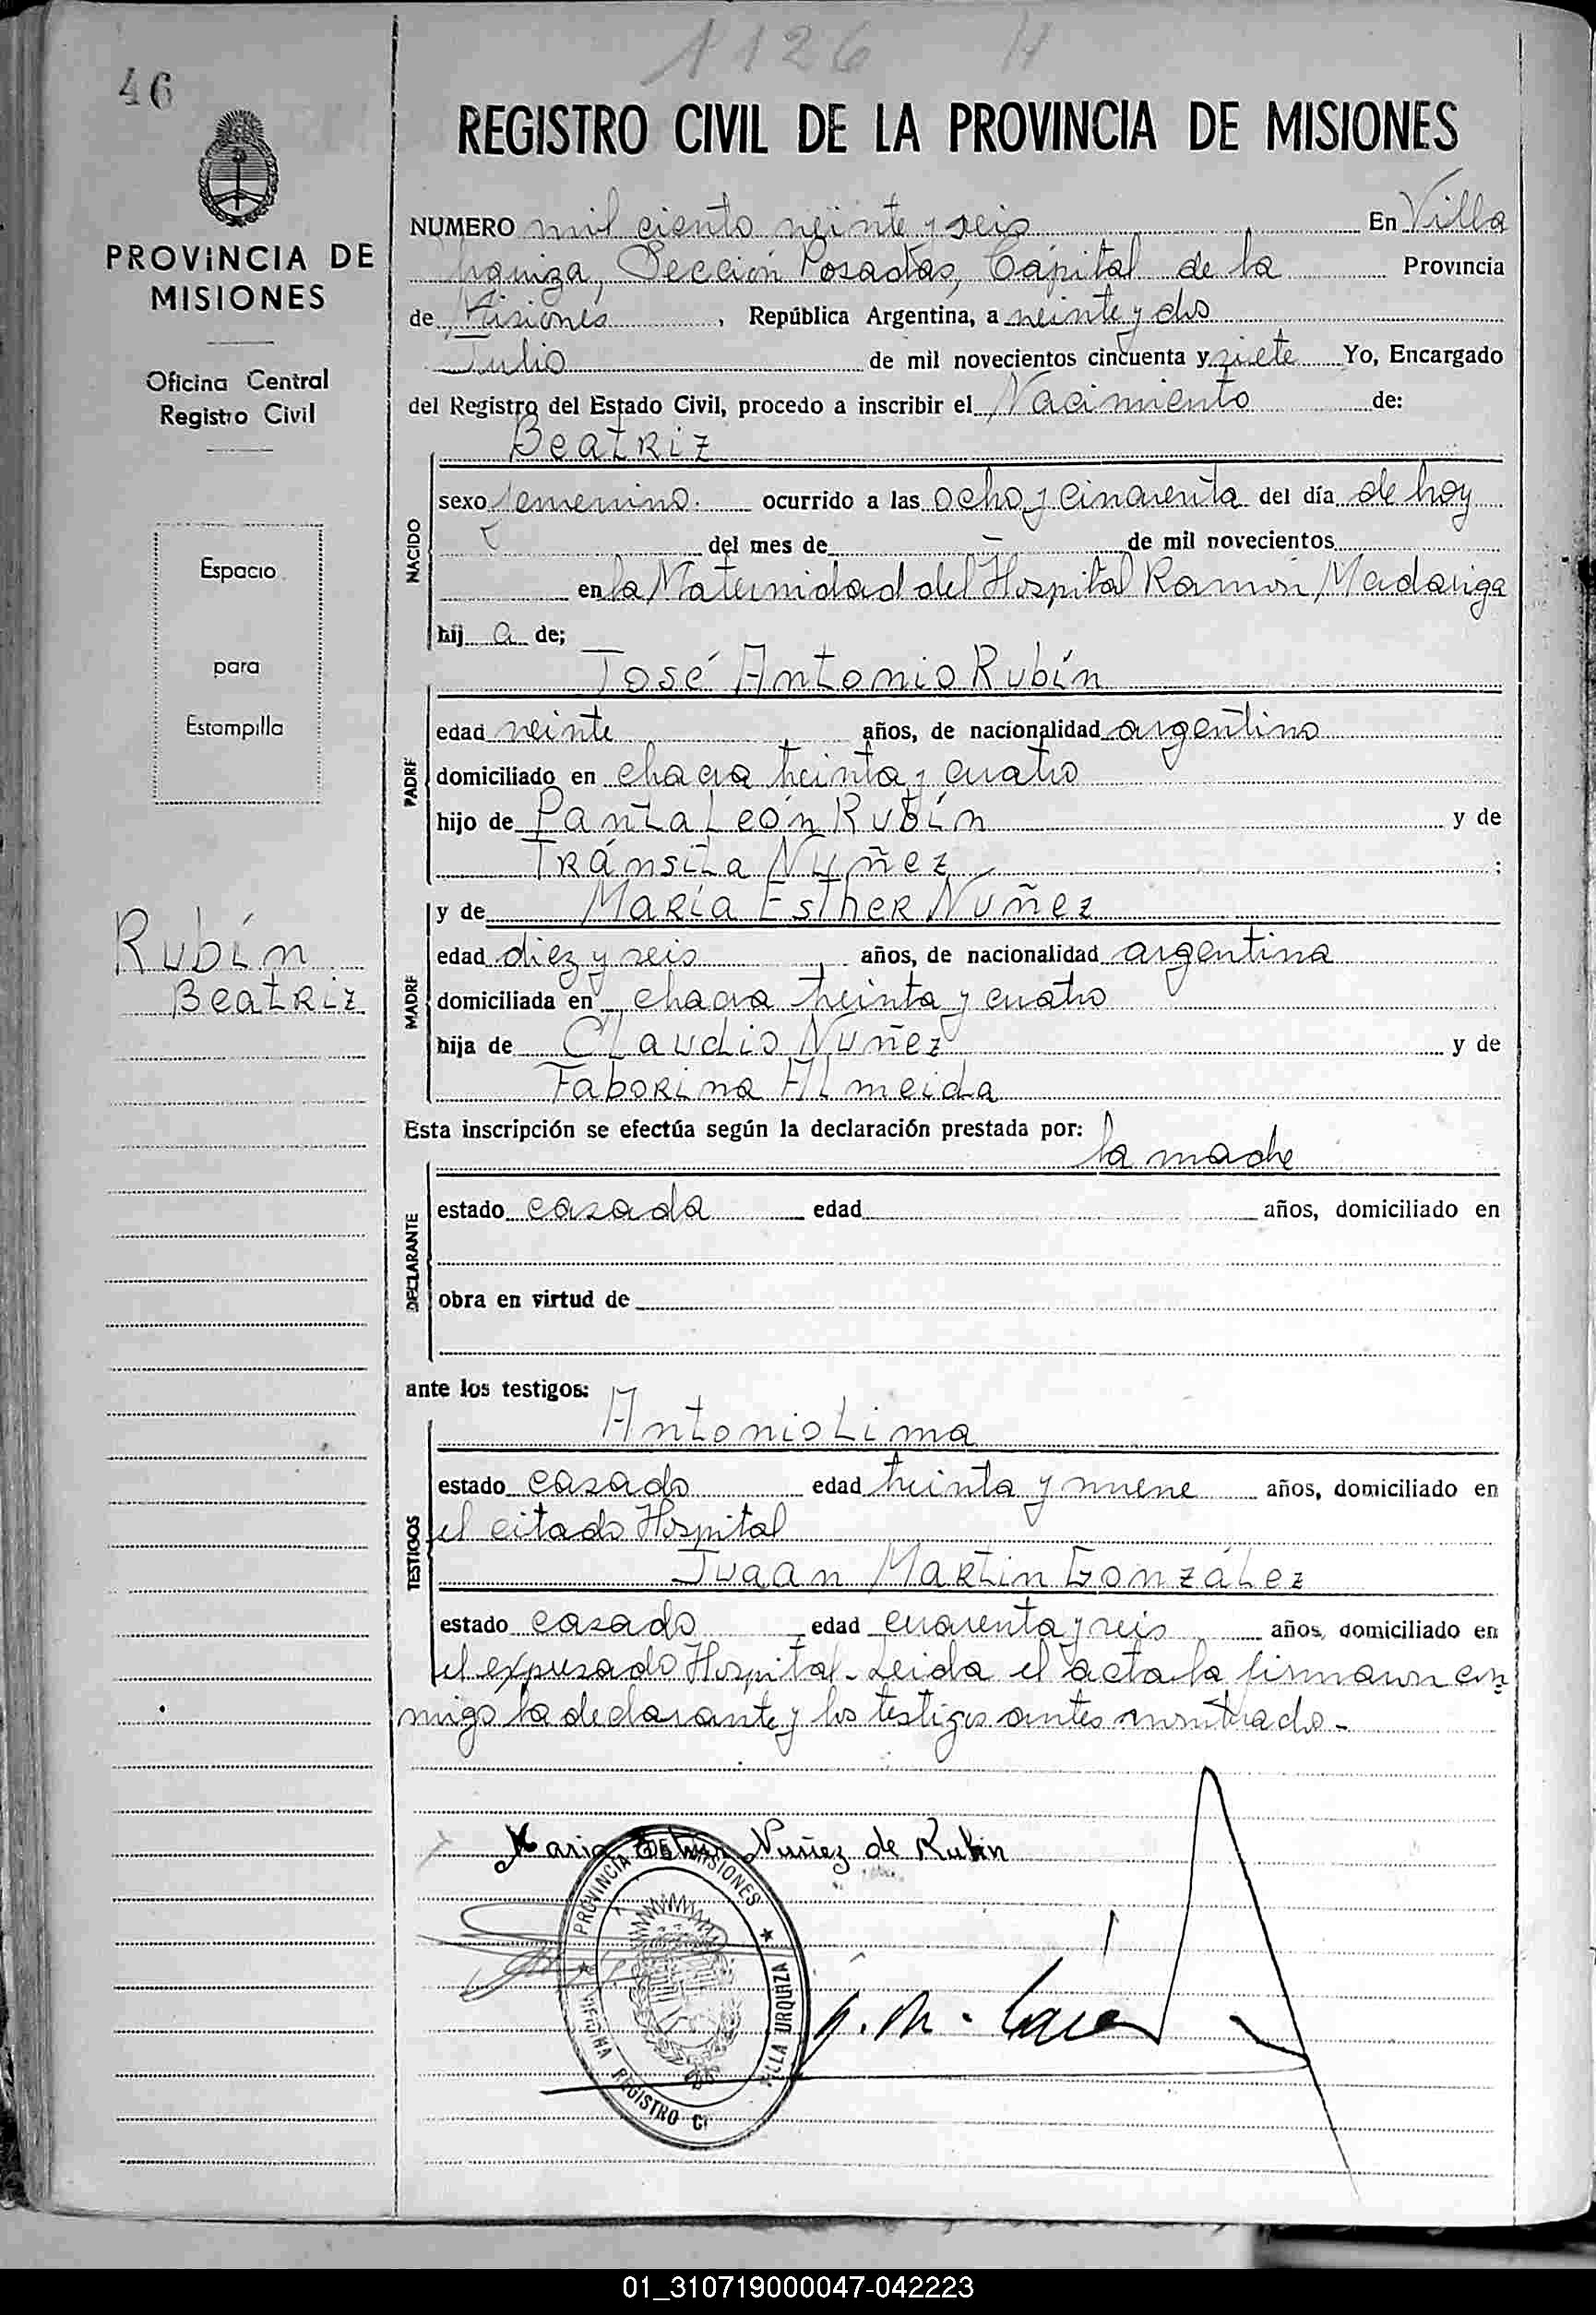 1126 H
46
REGISTRO CIVIL DE LA PROVINCIA DE MISIONES
PROVINCIA DE
MISIONES
Oficina Central
Registro Civil
Espacio
para
Estampilla
Rubín
Beatriz
NUMERO mil ciento veinte y seis En Villa
Urquiza, Sección Posadas, Capital de la Provincia
de Misiones, República Argentina, a veinte y dos
Julio de mil novecientos cincuenta y siete Yo, Encargado
del Registro del Estado Civil, procedo a inscribir el Nacimiento de:
Beatriz
NACIDO
sexo femenino. ocurrido a las ocho y cincuenta del día de hoy
del mes de de mil novecientos
en la Maternidad del Hospital Ramón Madariaga
hij a de;
José Antonio Rubín
PADRE
edad veinte años, de nacionalidad argentino
domiciliado en chacra treinta y cuatro
hijo de Pantaleón Rubín y de
Tránsita Nuñez ;
y de María Esther Nuñez
MADRE
edad diez y seis años, de nacionalidad argentina
domiciliada en chacra treinta y cuatro
hija de Claudio Nuñez y de
Faborina Almeida
Esta inscripción se efectúa según la declaración prestada por:
la madre
DECLARANTE
estado casada edad años, domiciliado en
obra en virtud de
ante los testigos:
Antonio Lima
TESTIGOS
estado casado edad treinta y nueve años, domiciliado en
el citado Hospital
Juan Martin González
estado casado edad cuarenta y seis años, domiciliado en
el expresado Hospital. Leida el acta la firmaron con
migo la declarante y los testigos antes
Maria Esther Nuñez de Rubin
PROVINCIA DE MISIONES
VILLA URQUIZA
REGISTRO CI
01_310719000047-042223